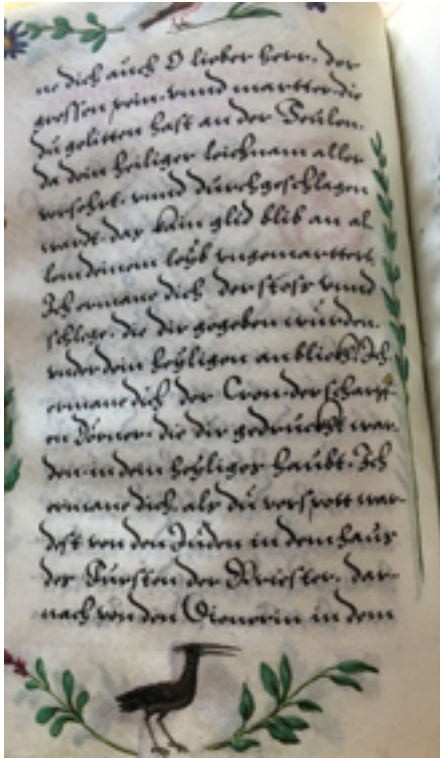 ne dich auch O lieber herr, der
grossen pein, vnnd martter die
du gelitten hast an der Seulen,
da dein heiliger leichnam aller
versehrt, vnnd durchgeschlagen
wardt, das kain glid blib an al
lem deinem leÿb vngemarttert
Ich ermane dich der stoss vnnd
schlege, die dir gegeben wurden,
vnder dein heÿligen anblickh, Ich
ermane dich der Cron der scharpf
en Dörner, die dir gedruckht war
den in dem heÿliges haubt, Ich
ermane dich, als du verspott war
dest von den Juden in dem haus
der Fürsten der Priester, dar-
nach von den Dienerin in dem